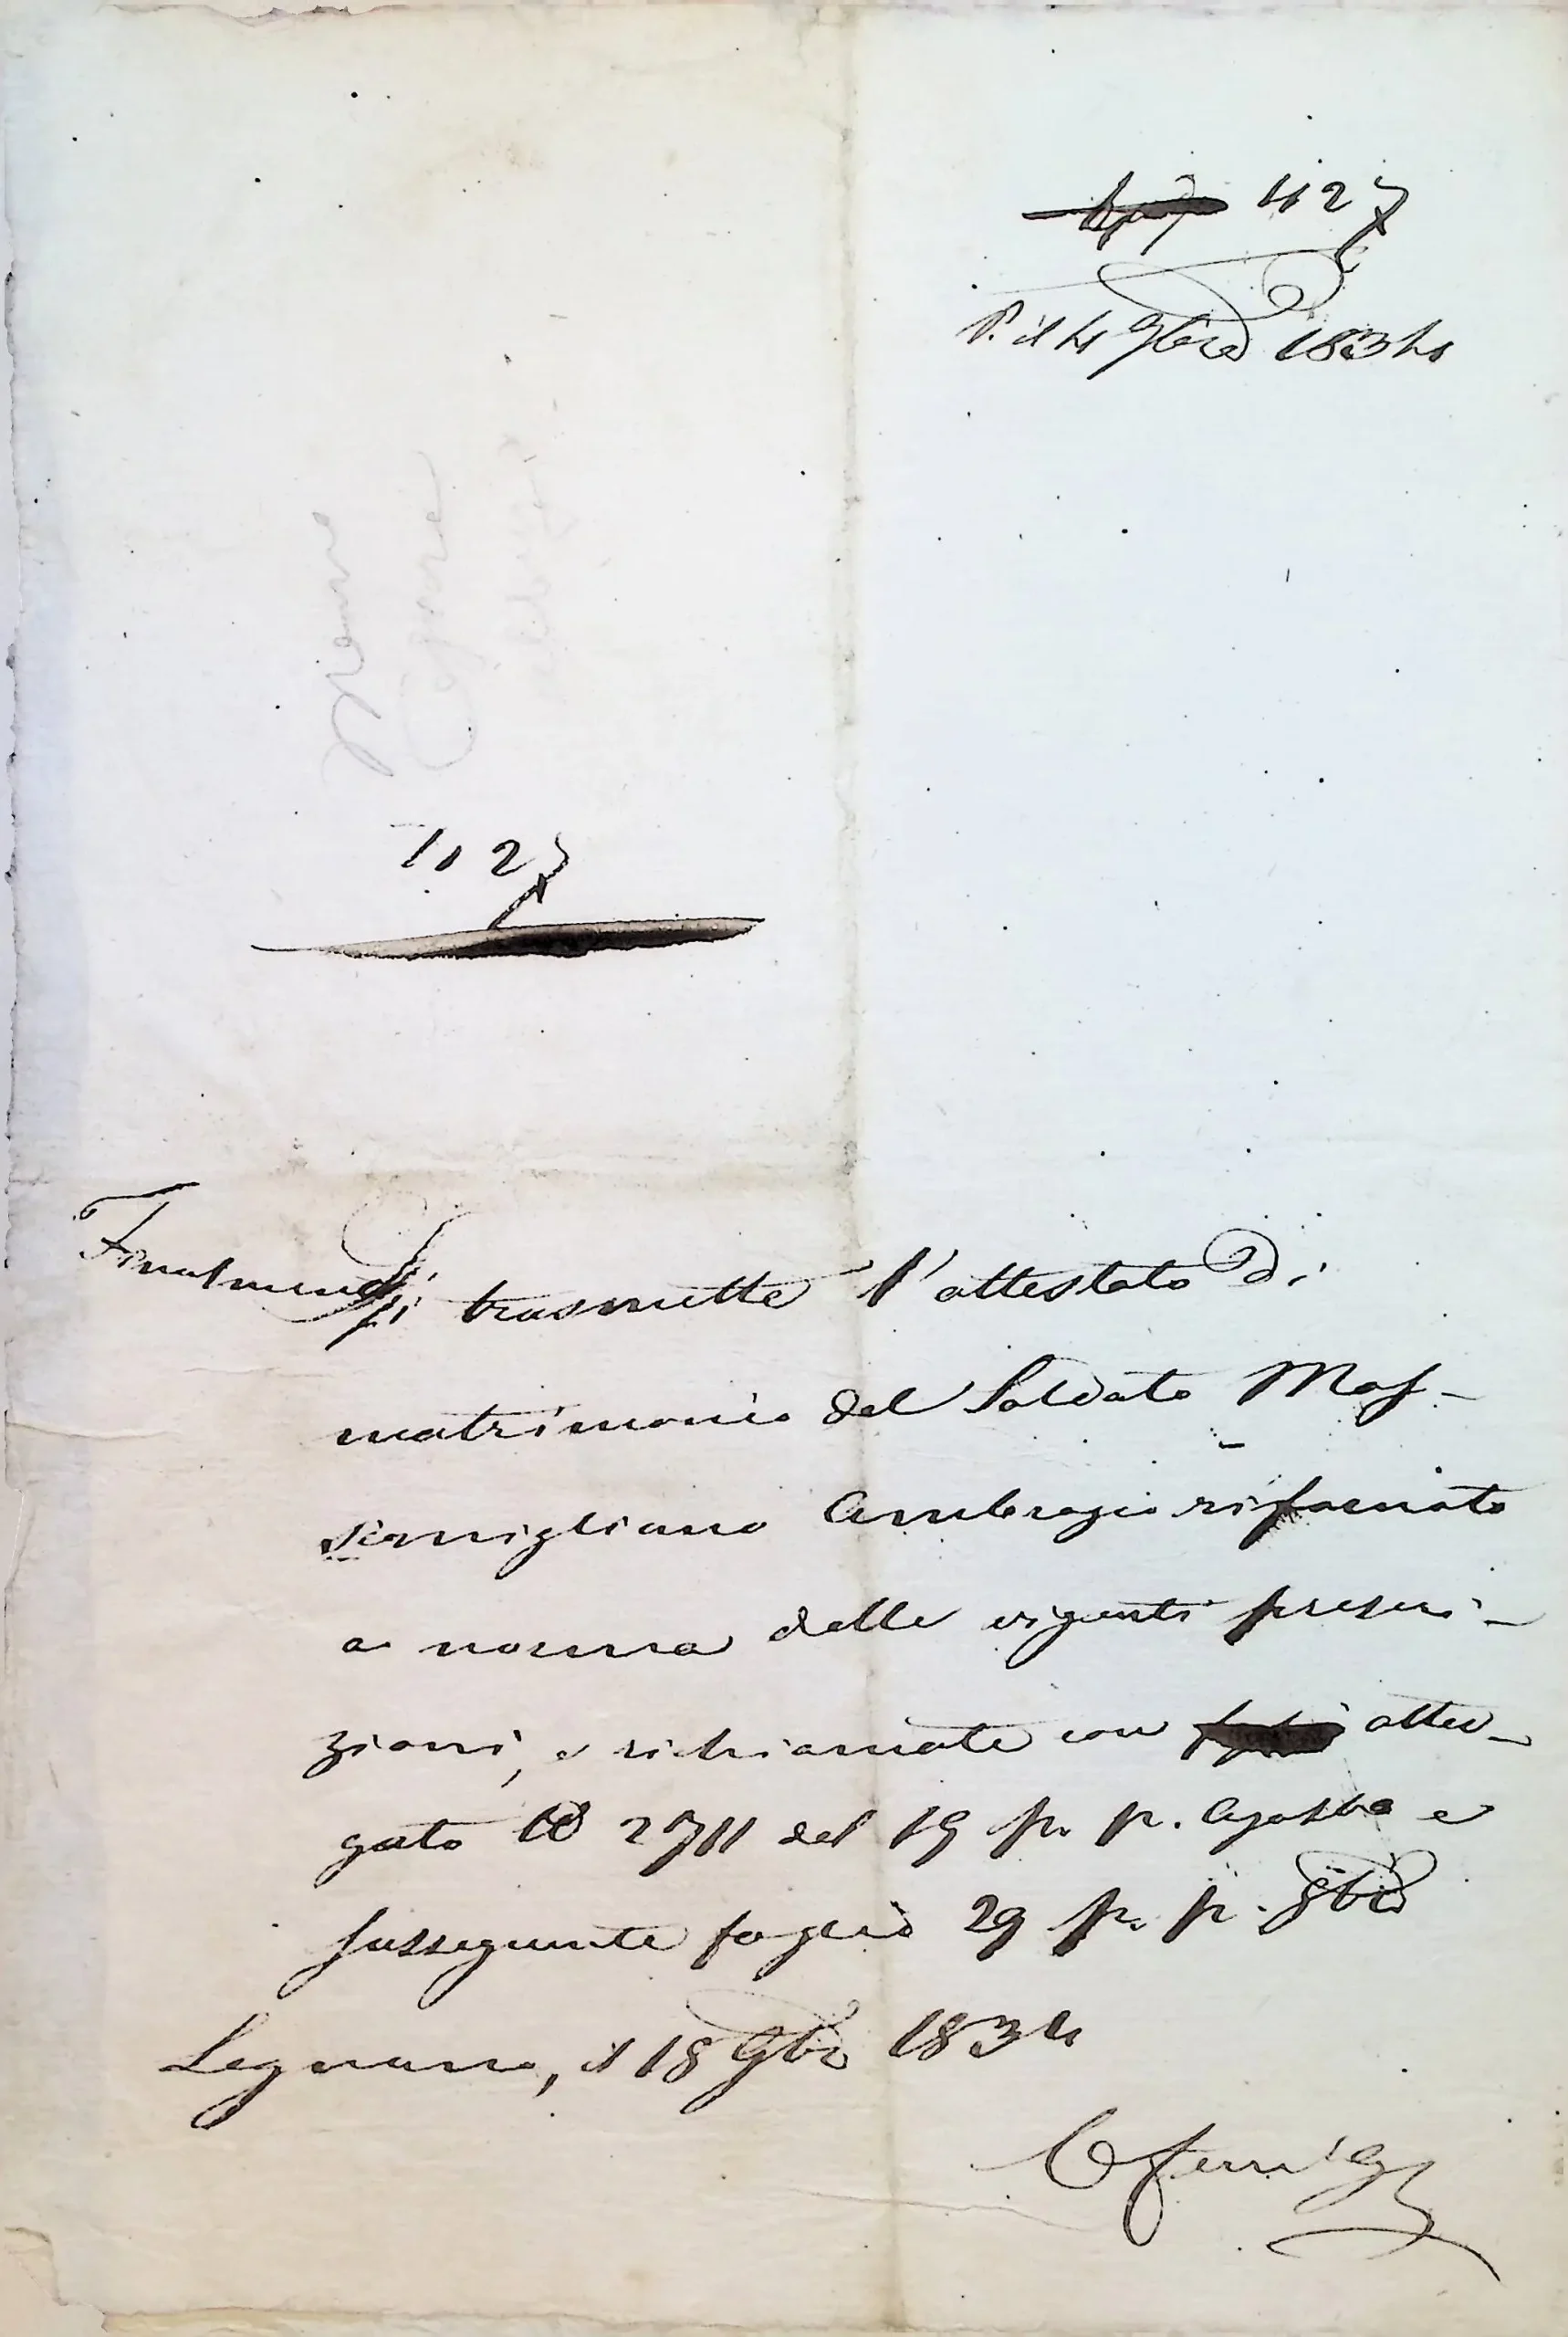 427
P. il 4 9bre 1834
427
Finalmente Si trasmette l'attestato di
matrimonio del Soldato Mas-
simigliano Ambrogio riformato
a norma delle vigenti prescri-
zioni, e richiamate con atter-
gato N 2711 del 19 p. p. Agosto e
susseguente foglio 29 p. p. 8bre
Legnano, il 18 9bre 1834